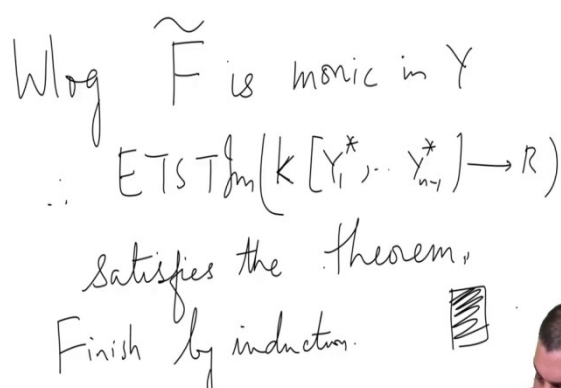 Wlog F̃ is monic in Y
∴ ETST Im(k[Y₁*,.. Yₙ₋₁*] → R)
satisfies the theorem.
Finish by induction.